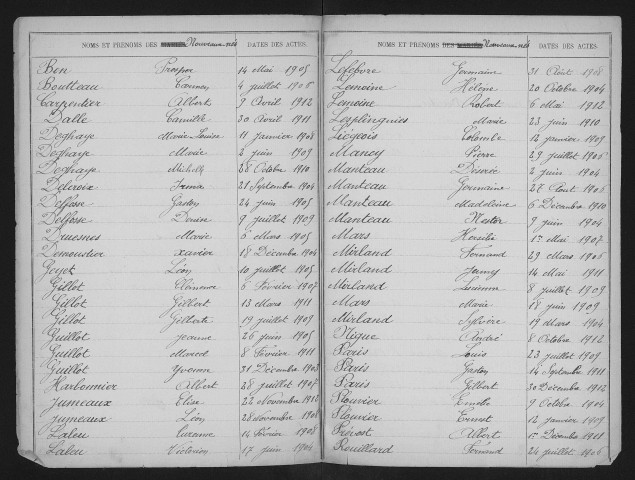 NOMS ET PRÉNOMS DES MARIÉS Nouveaux nés DATES DES ACTES.
Ben Prosper 14 Mai 1905
Boutteau Carmen 4 juillet 1908
Carpentier Albert 9 Avril 1912
Dalle Camille 30 Avril 1911
Deghaye Marie Louise 11 janvier 1908
Deghaye Marie 2 juin 1909
Deghaye Michel 28 Octobre 1910
Delcroix Irma 21 Septembre 1904
Gaston 24 juin 1905
Delfosse Denise 9 juillet 1909
Druesnes Marie 6 Mars 1905
Demoustier Xavier 18 Décembre 1904
Goyet Léon 10 juillet 1905
Gillot Clémence 6 Février 1907
Gillot Gilbert 13 Mars 1911
Gillot Gilberte 19 juillet 1909
Guillot Jeanne 26 juin 1905
Guillot Marcel 8 Février 1911
Guillot Yvonne 31 Décembre 1908
Harbonnier Albert 28 juillet 1907
Jumeaux Elise 22 Novembre 1912
Jumeaux Léon 28 Novembre 1908
Laleu Suzanne 14 Février 1908
Laleu Victorien 17 juin 1904
NOMS ET PRÉNOMS DES MARIÉS Nouveaux nés DATES DES ACTES.
Lefebvre Germaine 31 Août 1908
Lemoine Hélène 20 Octobre 1904
Lemoine Robert 6 Mai 1912
Lesplingnies Marie 23 juin 1910
Liégeois Colombe 12 janvier 1909
Mancy Pierre 29 juillet 1906
Manteau Désirée 2 juin 1904
Manteau Germaine 27 Août 1906
Manteau Madeleine 6 Décembre 1910
Manteau Nestor 9 juin 1904
Mars 1er Mai 1907
Mirland Fernand 29 Mars 1906
Mirland Fanny 14 Mai 1911
Mirland Lucienne 8 juillet 1909
Mars Marie 18 juin 1909
Mirland Sylvère 19 Mars 1904
Nique André 8 Octobre 1912
Paris Louis 23 juillet 1909
Paris Gaston 14 Septembre 1911
Paris Gilbert 30 Décembre 1912
Plouvier Emilie 9 Octobre 1904
Plouvier Ernest 12 janvier 1909
Prévost Albert 1er Décembre 1911
Rouillard Fernand 24 juillet 1906